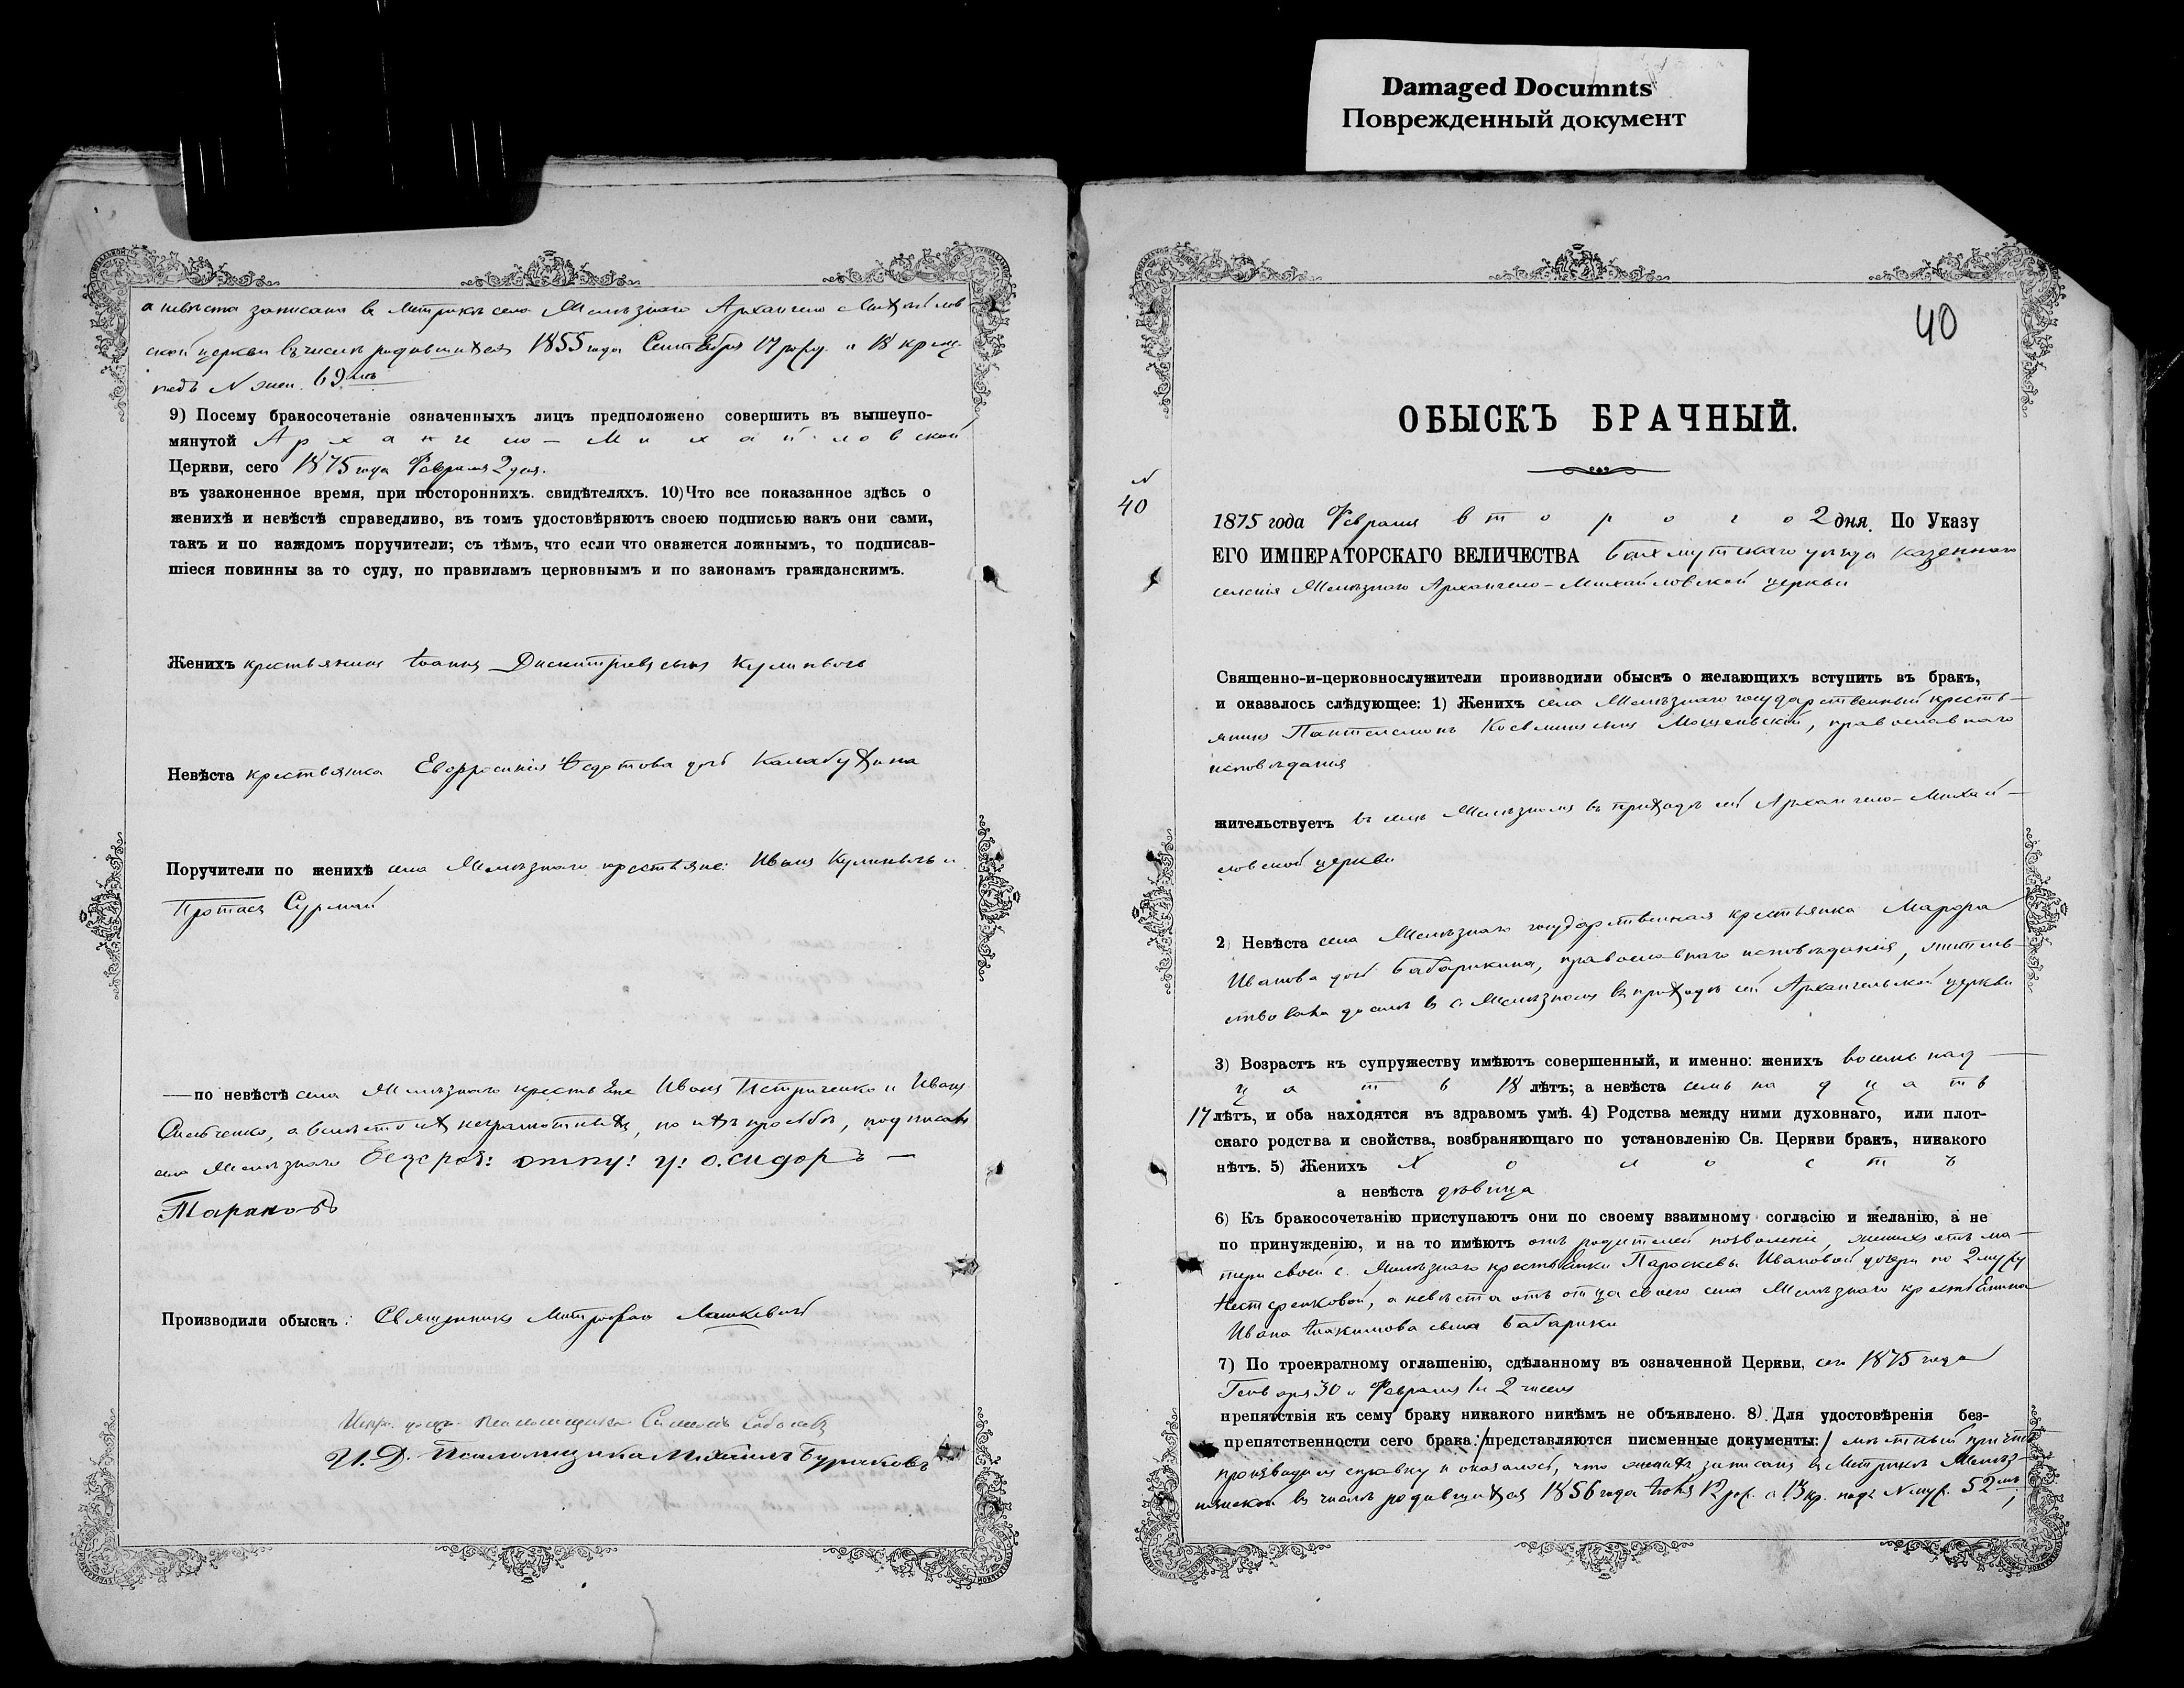 Damaged Documnts
Поврежденный документ
а невѣста записана в метрикѣ села Желѣзнаго Архангело Михайлов
ской церкви въ числѣ родившихся 1855 года Сентября 17 рожд. и 18 крещ.
подъ N жен. 69мъ
9) Посему бракосочетаніе означенныхъ лицъ предположено совершить въ вышеупо-
мянутой Архангело-Михайловской
Церкви, сего 1875 года Февраля 2 дня.
въ узаконенное время, при постороннихъ. свидѣтеляхъ. 10) Что все показанное здѣсь о
женихѣ и невѣстѣ справедливо, въ томъ удостовѣряютъ своею подписью какъ они сами,
такъ и по каждомъ поручители; съ тѣмъ, что если что окажется ложнымъ, то подписав-
шіеся повинны за то суду, по правиламъ церковнымъ и по законамъ гражданскимъ.
Женихъ крестьянинъ Іоаннъ Димитріевъ сынъ
Невѣста крестьянка Евфросинія Ѳедотова дочь Калабухина
Поручители по женихѣ села Желѣзнаго крестьяне: Иванъ и
Протасъ Сурмай
— по невѣстѣ села Желѣзнаго крестьяне Иванъ Петриченко и Иванъ
а вмѣсто ихъ неграмотныхъ, по ихъ прозьбѣ, подписалъ
села Желѣзнаго отпу: у: о. Сидоръ —
Тарановъ
Производили обыскъ: Священникъ Митрофанъ Лашкевичъ
псаломщика Симеонъ
И. Д. Псаломщика Михаилъ Бураковъ
40
ОБЫСКЪ БРАЧНЫЙ.
N
40
1875 года Февраля второго 2 дня. По Указу
ЕГО ИМПЕРАТОРСКАГО ВЕЛИЧЕСТВА Бахмутскаго уѣзда казеннаго
селенія Желѣзнаго Архангело-Михайловской церкви
Священно-и-церковнослужители производили обыскъ о желающихъ вступить въ бракъ,
и оказалось слѣдующее: 1) Женихъ села Желѣзнаго государственный кресть-
янинъ Пантелеимонъ Косминъ сынъ Мощенскій, православнаго
исповѣданія
жительствуетъ въ селѣ Желѣзномъ въ приходѣ сей Архангело-Михай-
ловской церкви
2) Невѣста села Желѣзнаго государственная крестьянка Марфа
Иванова дочь Бабарикина, православнаго исповѣданія, житель-
ствовала доселѣ въ с. Желѣзномъ въ приходѣ сей Архангельской церкви
3) Возрастъ къ супружеству имѣютъ совершенный, и именно: женихъ восемнад-
цать 18 лѣтъ; а невѣста семьнадцать
17 лѣтъ, и оба находятся въ здравомъ умѣ. 4) Родства между ними духовнаго, или плот-
скаго родства и свойства, возбраняющаго по установленію Св. Церкви бракъ, никакого
нѣтъ. 5) Женихъ холостъ
а невѣста дѣвица
6) Къ бракосочетанію приступаютъ они по своему взаимному согласію и желанію, а не
по принужденію, и на то имѣютъ отъ родителей позволеніе, женихъ отъ ма-
тери своей с. Желѣзнаго крестьянки Параскевы Ивановой дочери по 2 мужу
Нестеренковой, а невѣста отъ отца своего села Желѣзнаго крестьянина
Ивана Іоакимова сына Бабарики
7) По троекратному оглашенію, сдѣланному въ означенной Церкви, сего 1875 года
Генваря 30 и Февраля 1 и 2 чиселъ
препятствія къ сему браку никакого никѣмъ не объявлено. 8) Для удостовѣренія без-
препятственности сего брака: /представляются писменные документы:/ мѣстный причтъ
производилъ справку и оказалось, что женихъ записанъ въ метрикѣ Желѣз-
нянской въ числѣ родившихся 1856 года Іюля 12 рож. а 13 кр. подъ N муж. 52мъ,